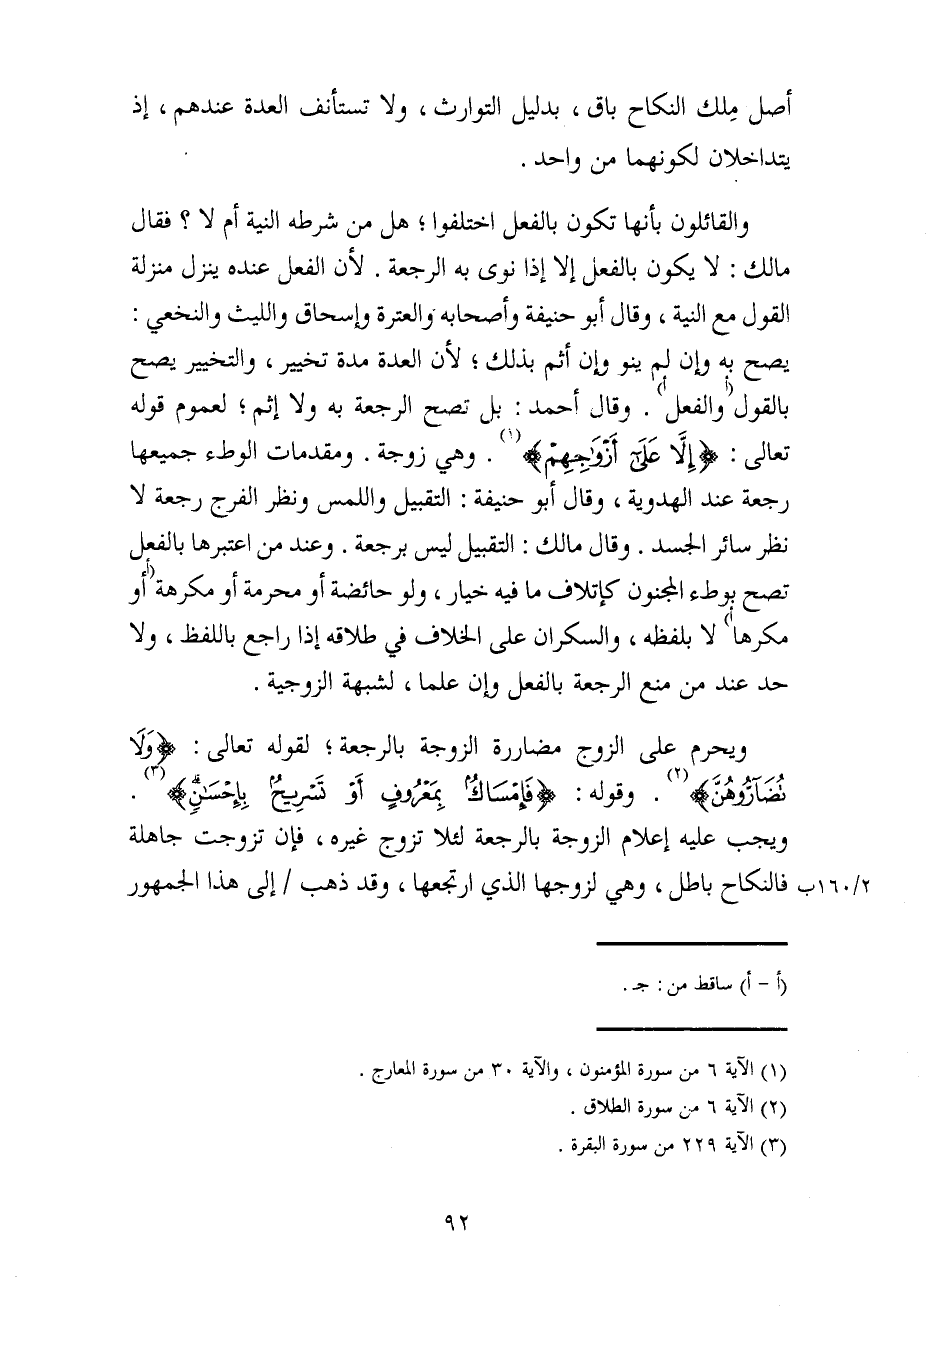 أصل مِلك النكاح باق ، بدليل التوارث ، ولا تستأنف العدة عندهم ، إذ
يتداخلان لكونهما من واحد .
والقائلون بأنها تكون بالفعل اختلفوا ؛ هل من شرطه النية أم لا ؟ فقال
مالك : لا يكون بالفعل إلا إذا نوى به الرجعة . لأن الفعل عنده ينزل منزلة
القول مع النية ، وقال أبو حنيفة وأصحابه والعترة وإسحاق والليث والنخعي :
يصح به وإن لم ينو وإن أثم بذلك ؛ لأن العدة مدة تخيير ، والتخيير يصح
بالقول (أ والفعل أ) . وقال أحمد : بل تصح الرجعة به ولا إثم ؛ لعموم قوله
تعالى : ﴿إِلَّا عَلَىٰ أَزْوَٰجِهِمْ﴾(١) . وهي زوجة . ومقدمات الوطء جميعها
رجعة عند الهدوية ، وقال أبو حنيفة : التقبيل واللمس ونظر الفرج رجعة لا
نظر سائر الجسد . وقال مالك : التقبيل ليس برجعة . وعند من اعتبرها بالفعل
تصح بوطء المجنون كإتلاف ما فيه خيار ، ولو حائضة أو محرمة أو مكرهة (أ أو
مكرها أ) لا بلفظه ، والسكران على الخلاف في طلاقه إذا راجع باللفظ ، ولا
حد عند من منع الرجعة بالفعل وإن علما ، لشبهة الزوجية .
ويحرم على الزوج مضاررة الزوجة بالرجعة ؛ لقوله تعالى : ﴿وَلَا
نُضَآرُّوهُنَّ﴾(٢) . وقوله : ﴿فَإِمْسَاكٌۢ بِمَعْرُوفٍ أَوْ تَسْرِيحٌۢ بِإِحْسَٰنٍۗ﴾(٣) .
ويجب عليه إعلام الزوجة بالرجعة لئلا تزوج غيره ، فإن تزوجت جاهلة
١٦٠/٢ب فالنكاح باطل ، وهي لزوجها الذي ارتجعها ، وقد ذهب / إلى هذا الجمهور
(أ - أ) ساقط من : جـ .
(١) الآية ٦ من سورة المؤمنون ، والآية ٣٠ من سورة المعارج .
(٢) الآية ٦ من سورة الطلاق .
(٣) الآية ٢٢٩ من سورة البقرة .
٩٢